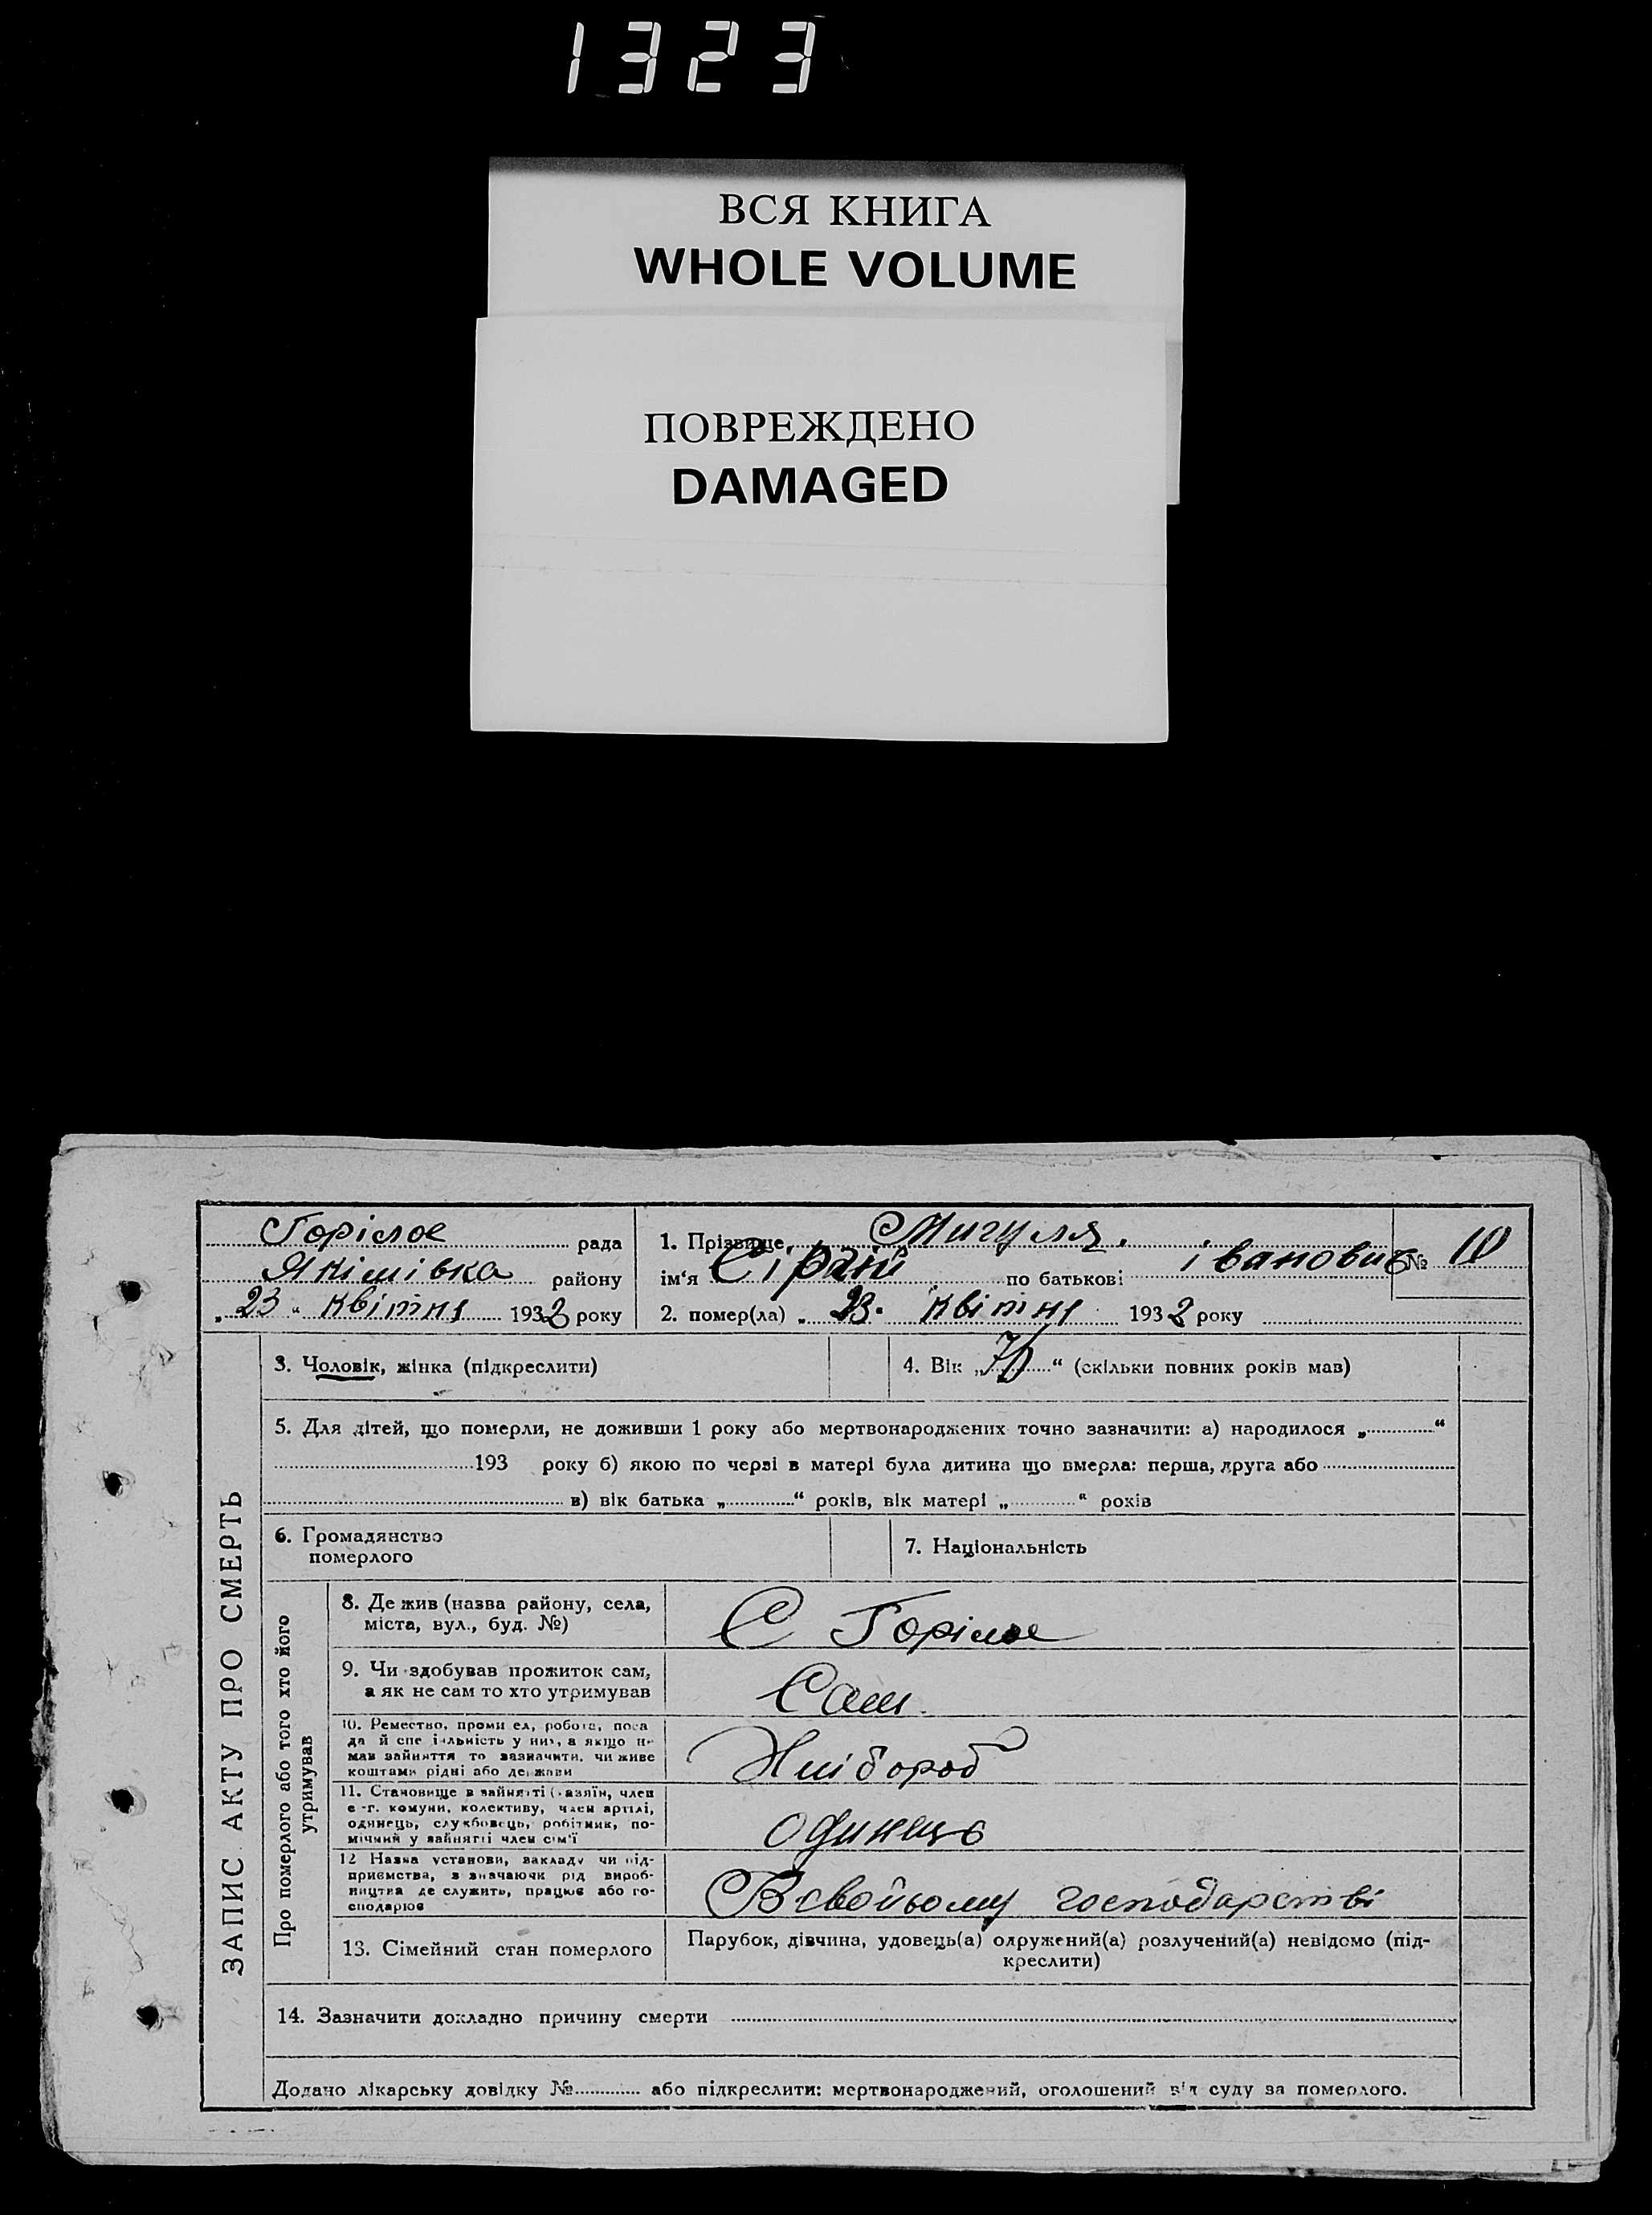 1323
ВСЯ КНИГА
WHOLE VOLUME
ПОВРЕЖДЕНО
DAMAGED
Горілое рада
Якімівка району
„23“ квітня 1932 року
1. Прізвище Мигуля.
ім'я Сіргій по батькові івановиь № 10
2. помер(ла) „23. квітня 1932 року
ЗАПИС АКТУ ПРО СМЕРТЬ
3. Чоловік, жінка (підкреслити)
4. Вік „ “ (скільки повних років мав)
5. Для дітей, що померли, не доживши 1 року або мертвонароджених точно зазначити: а) народилося „ “
193 року б) якою по черзі в матері була дитина що вмерла: перша, друга або
в) вік батька „ “ років, вік матері „ “ років
6. Громадянство
померлого
7. Національність
Про померлого або того хто його
утримував
8. Де жив (назва району, села,
міста, вул., буд. №)
С Горілое
9. Чи здобував прожиток сам,
а як не сам то хто утримував
Сам.
10. Ремество, промисел, робота, поса
да й спеціальність у них, а якщо не
мав зайняття то зазначити, чи живе
коштами рідні або держави
Хлібороб
11. Становище в зайнятті (хазяїн, член
с.-г. комуни, колективу, член артілі,
одинець, службовець, робітник, по-
мічний у зайнятті член сім'ї
одинець
12 Назва установи, закладу чи під-
приємства, зазначаючи рід вироб-
ництва де служить, працює або го-
сподарює
В свойьому господарстві
13. Сімейний стан померлого
Парубок, дівчина, удовець(а) одружений(а) розлучений(а) невідомо (під-
креслити)
14. Зазначити докладно причину смерти
Додано лікарську довідку № або підкреслити: мертвонароджений, оголошений від суду за померлого.